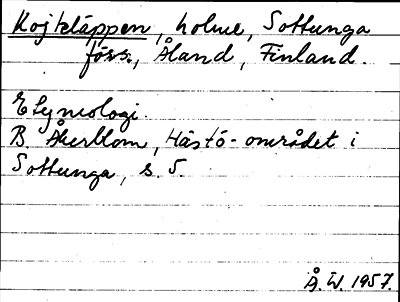 Kojkläppen, holme, Sottunga
förs., Åland, Finland.
Etymologi.
B. Åkerblom, Hästö-området i
Sottunga, s. 5.
Å. W. 1957.